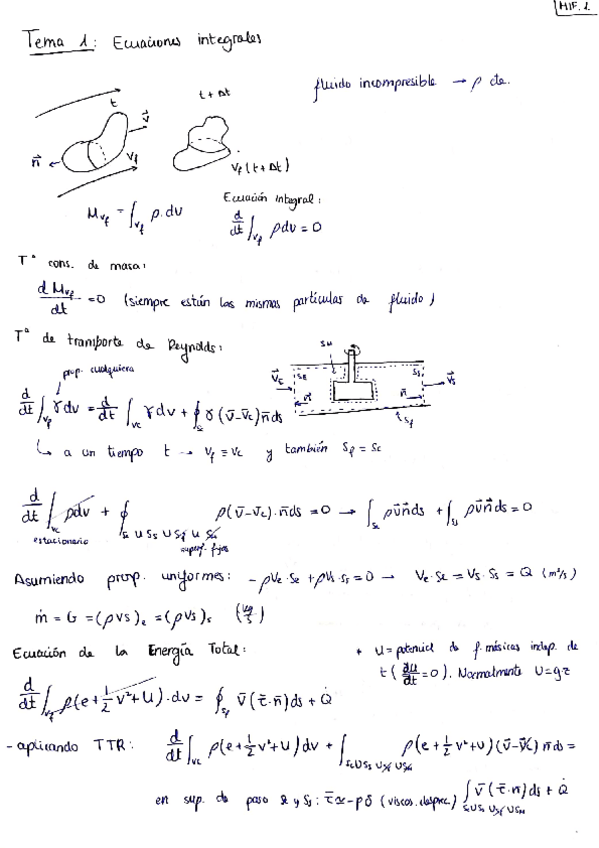 MIF. 1
Tema 1: Ecuaciones integrales
fluido incompresible → ρ cte.
t
t + Δt
v⃗
n⃗
V_f
V_f (t + Δt)
M_{V_f} = ∫_{V_f} ρ.dv
Ecuación integral:
d/dt ∫_{V_f} ρdv = 0
Tª cons. de masa:
d M_{V_f} / dt = 0 (siempre están las mismas partículas de fluido)
Tª de transporte de Reynolds:
prop. cualquiera
d/dt ∫_{V_f} γ dv = d/dt ∫_{Vc} γ dv + ∮_{Sc} γ (v̄ - v̄c) n̄ ds
SM
Se
Ss
n⃗
n⃗
S_f
↳ a un tiempo t → V_f ≡ Vc y también S_f = Sc
d/dt ∫_{Vc} ρdv + ∮_{Se U Ss U S_f U SM} ρ(v̄ - v̄c)·n̄ ds = 0 → ∫_{Se} ρv̄n̄ ds + ∫_{Ss} ρv̄n̄ ds = 0
estacionario
superf. fijas
Asumiendo prop. uniformes: -ρVe·Se + ρVs·Ss = 0 → Ve·Se = Vs·Ss = Q (m³/s)
ṁ = G = (ρVS)_e = (ρVS)_s (kg/s)
Ecuación de la Energía Total:
* U = potencial de f. másicas indep. de
t (dU/dt = 0). Normalmente U = gz
d/dt ∫_{V_f} ρ(e + 1/2 v² + U)·dv = ∮_{S_f} v̄ (τ̄·n̄) ds + Q̇
- aplicando TTR: d/dt ∫_{Vc} ρ(e + 1/2 v² + U) dv + ∫_{Se U Ss U S_f U SM} ρ(e + 1/2 v² + U)(v̄ - v̄c) n̄ ds =
en sup. de paso Se y Ss: τ̄ ≈ -pδ (viscos. desprec.) ∫_{Se U Ss U S_f U SM} v̄ (τ̄·n̄) ds + Q̇